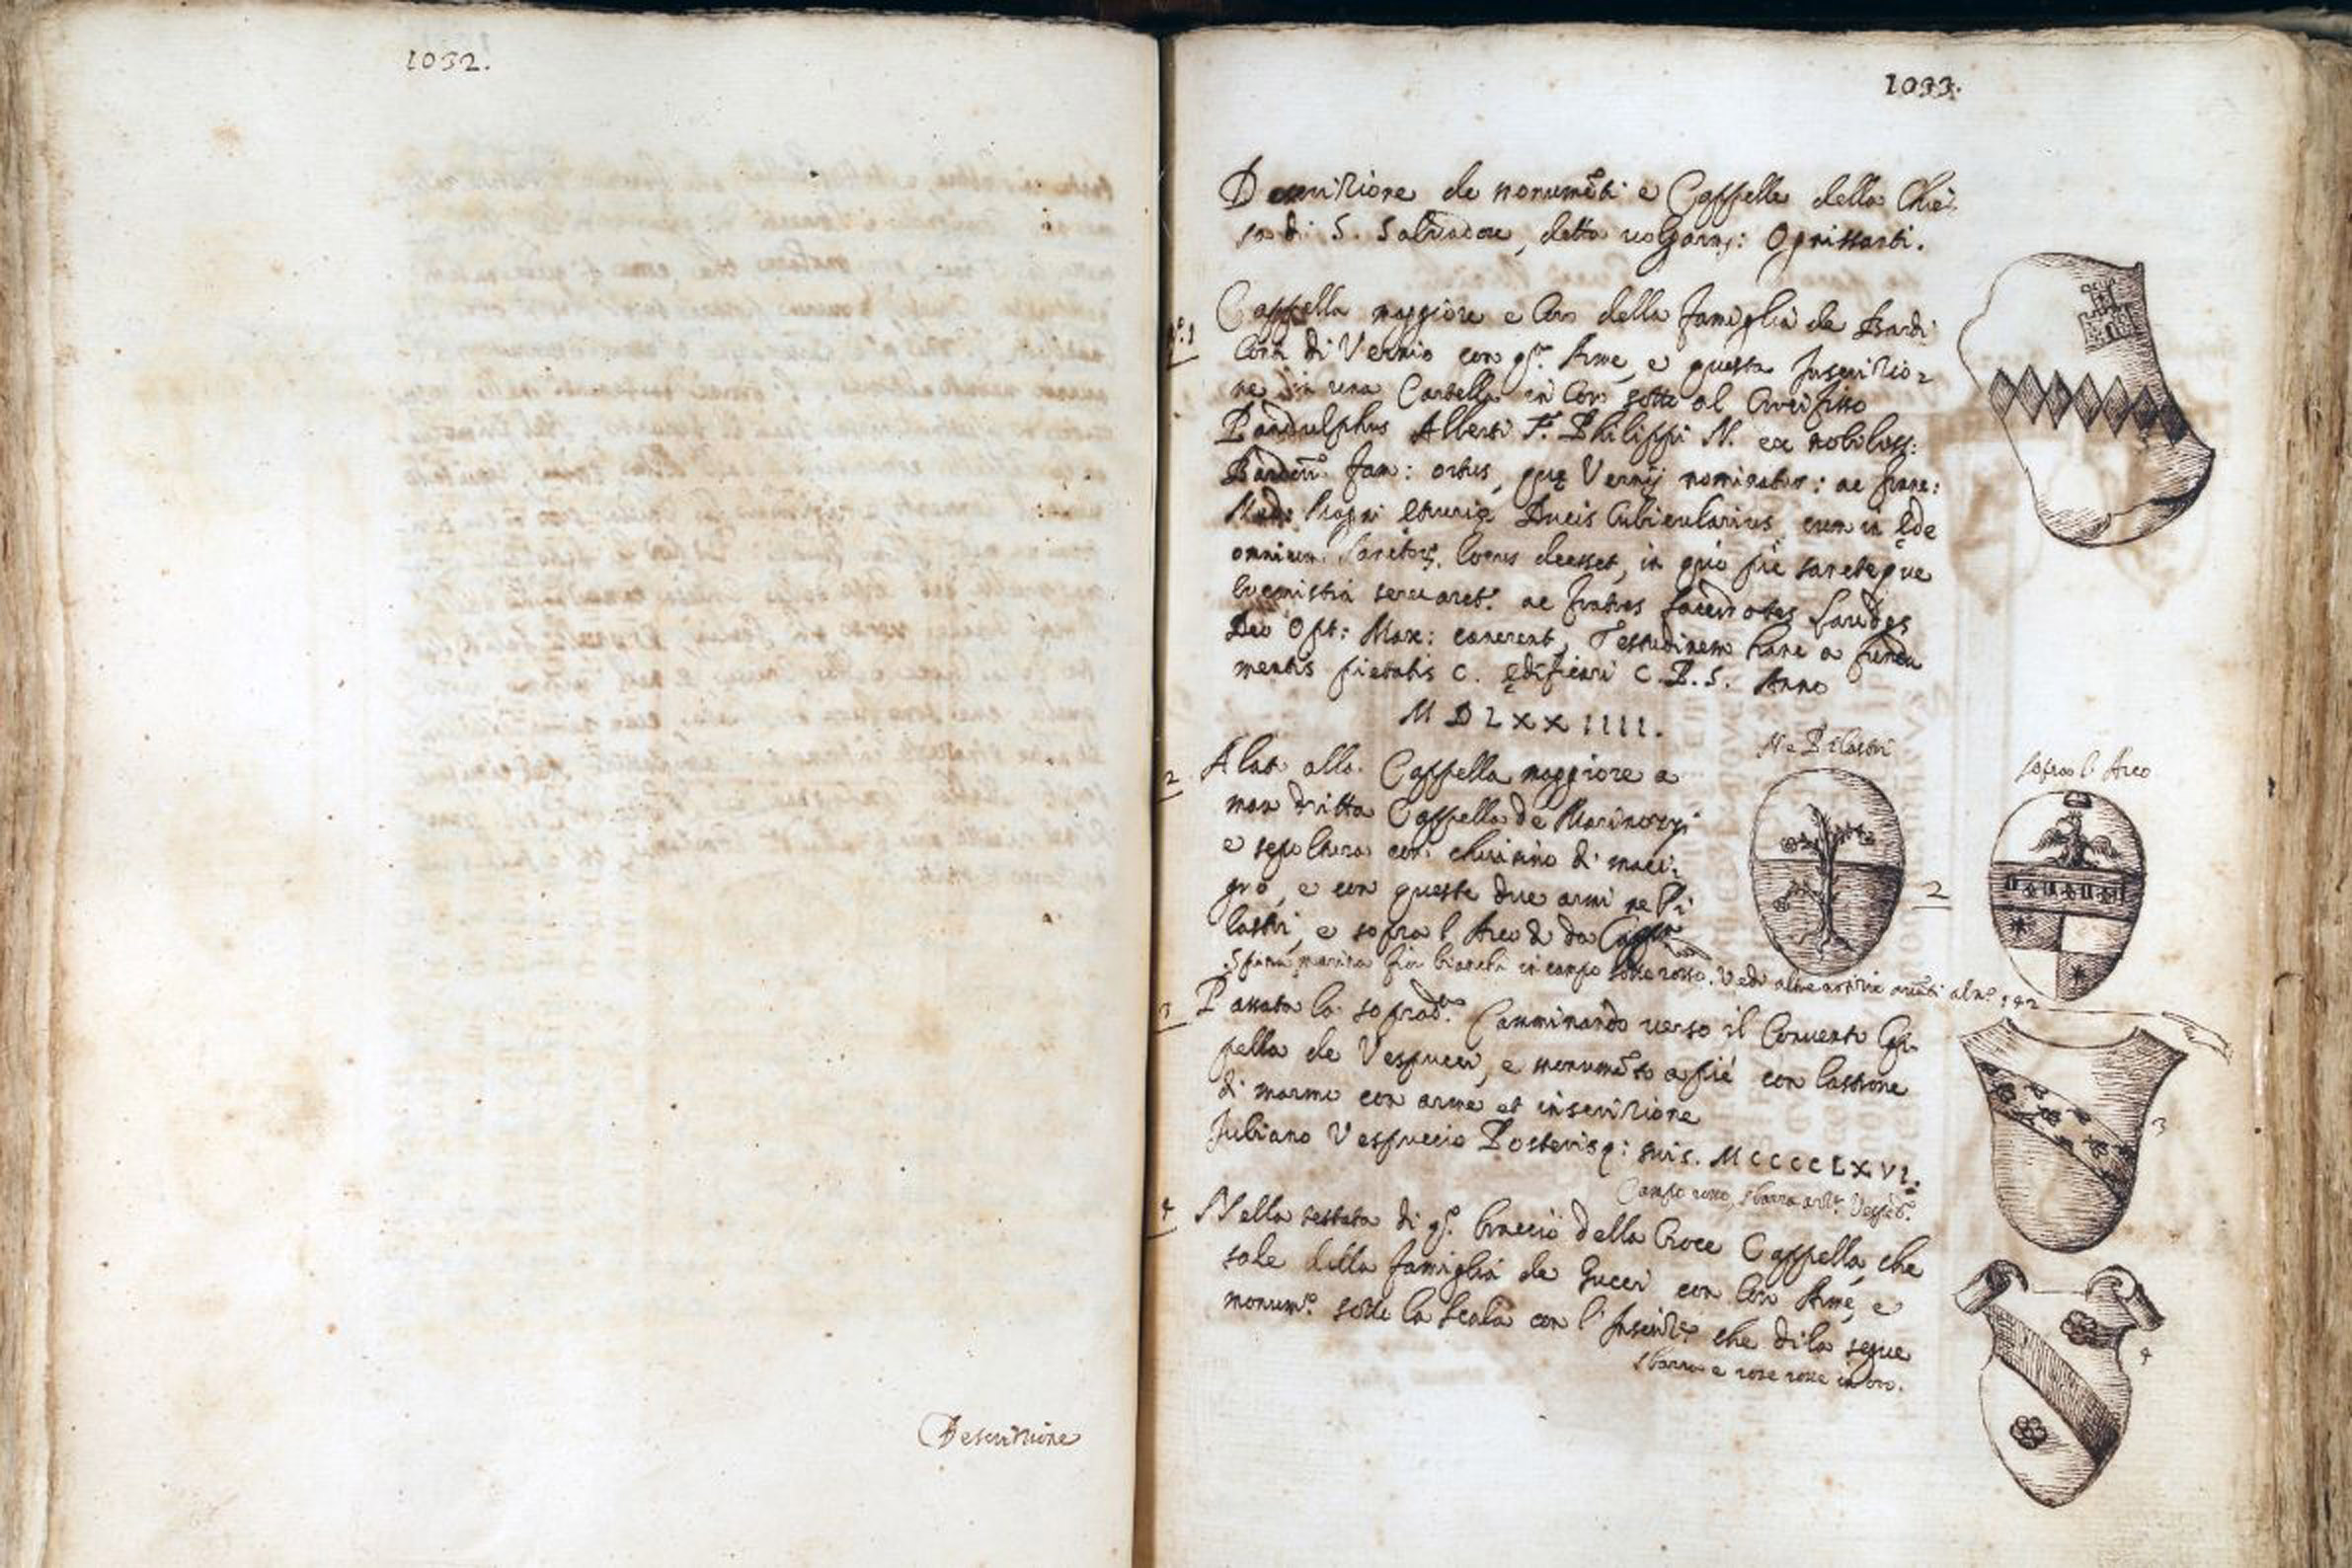 1032.
Descrittione
1033.
Descrittione de monumēti e Cappelle della Chie-
sa di S. Salvadore, detta volgarm: Ognissanti.
Nº. 1
Cappella maggiore e Coro della famiglia de Bardi
Conti di Vernio con qta Arme, e questa Inscritio-
ne in una Cartella in Coro sotto al Crocifisso
Pandulphus Alberti F. Philippi N. ex nobiliss:
Bardorū fam: ortus, quę Vernij nominatur: ac Franc:
Med: Magni Etrurię Ducis Cubicularius, cum in Ęde
omnium Sanctorum, locus deesset, in quo pie sancteque
Eucaristia servaret: ac fratres sacerdotes laudes
Deo Opt: Max: canerent, Testudinem hanc a funda
mentis pietatis C. ędificari C. P. S. Anno
MDLXXIIII.
Ne Pilastri
sopra l'Arco
2
A lato alla Cappella maggiore a
man dritta Cappella de Marinozzi
e sepoltura con chiusino di maci-
gno, e con queste due armi ne Pi
lastri, e sopra l'Arco di da Cappa
2
Spina marina fior bianchi in campo sotto rosso. Vedi altre notizie avāti al nº 142
3
Passata la sopradta Camminando verso il Convento Cap-
pella de Vespucci, e monumēto a piè con lastrone
di marmo con arme et inscrittione
Juliano Vespuccio Posterisq: suis. MCCCCLXVI.
Campo rosso, sbarra azza Vespe d'o.
3
4
Nella testata di qo braccio della Croce Cappella, che
sale della famiglia de Gucci con lor Arme, e
monumo sotto la scala con l'Inscritte che di la segue
sbarra e rose rosse in oro.
4